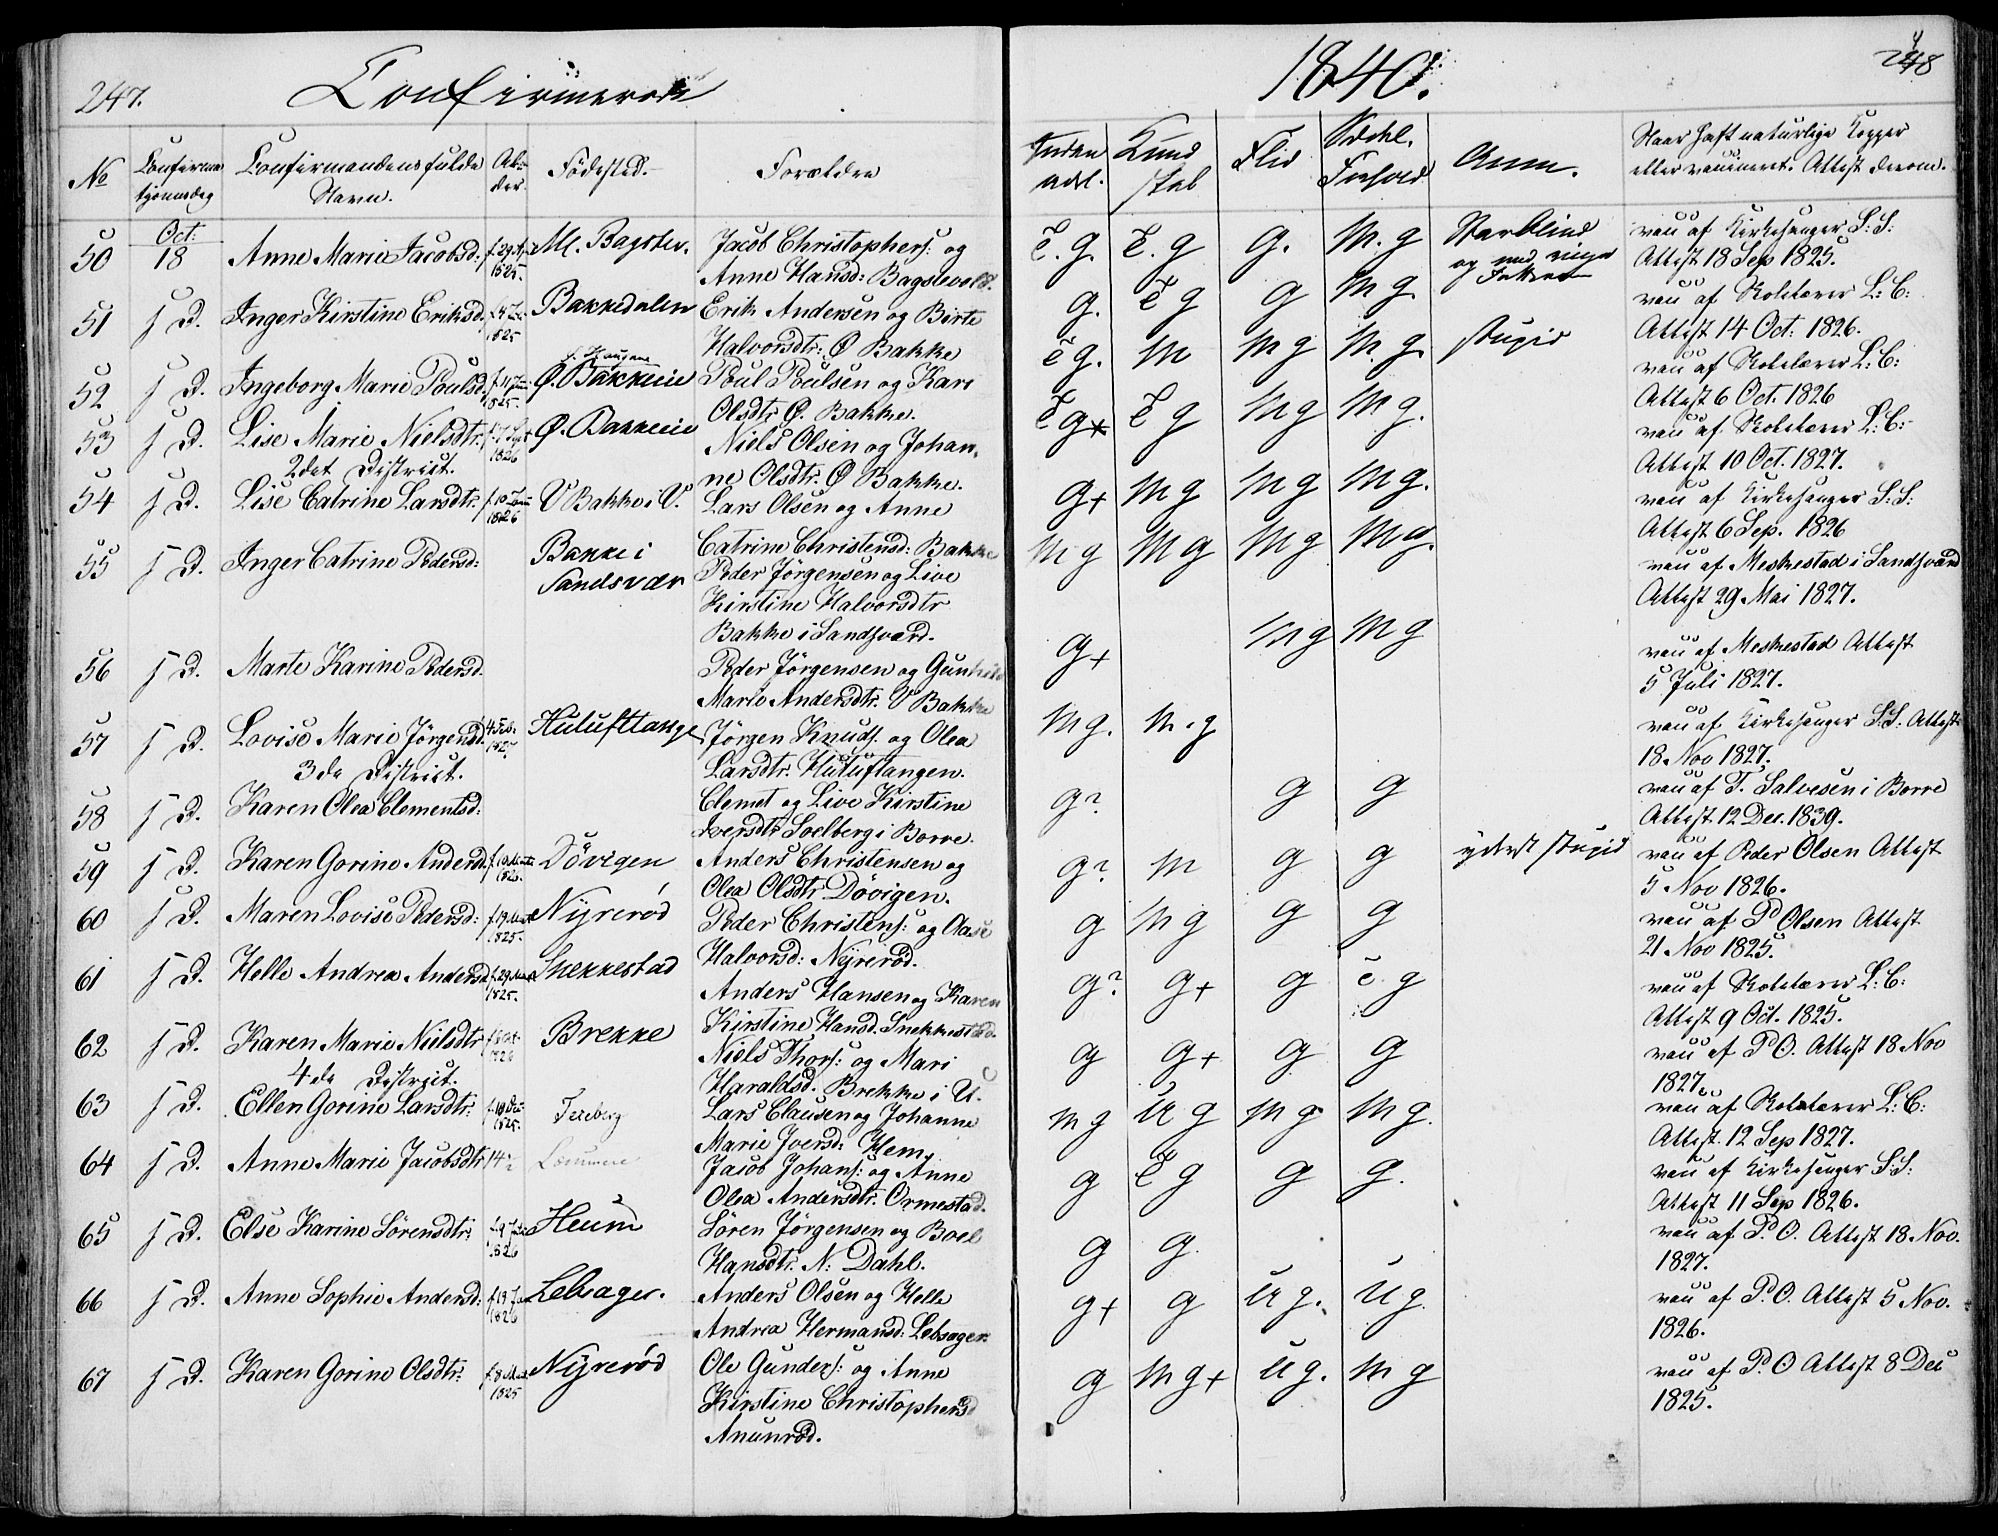 247.
Confirmerede
1840.
248
No
Confirma
tionsdag
Confirmandens fulde
Navn.
Al-
der.
Födested.
Forældre
Inden
adl.
Kund
skab
Flid
Sædel.
Forhold
Anm.
Naar haft naturlige Kopper
eller vaccineret. Attest derom.
50 Oct: 18 Anne Marie Jacobsd: 1825. M. Bagstev. Jacob Christophers: og
Anne Hansd: Bagstevold.
g. g g. M. g Stærblind
og med
vac af Kirkesanger S: S:
Attest 18 Sep 1825.
51 s D. Inger Kirstine Eriksd. 1825 Bakkedalen Erik Andersen og Birte
Halvorsdtr: Ø Bakke
g. g g Mg
vac af Skolelærer L: C:
Attest 14 Oct: 1826.
52 s D. Ingeborg Marie Poulsd. 1825. Ø. Bakkeeie Poul Poulsen og Kari
Olsdtr Ø. Bakke.
g. M Mg Mg. stupid
vac af Skolelærer L: C:
Attest 6 Oct. 1826
53 s D. Lise Marie Nielsdtr. 1826 Ø. Bakkeeie Niels Olsen og Johan-
ne Olsdtr. Ø Bakke.
g g Mg Mg.
vac af Skolelærer L: C:
Attest 10 Oct. 1827.
2det District.
54 s D. Lise Catrine Larsdtr. 1826 V Bakke i V. Lars Olsen og Anne
Catrine Christensd: Bakke
g+ Mg Mg Mg.
vac af Kirkesanger S: S:
Attest 6 Sep. 1826
55 s D. Inger Catrine Pedersd: Bakke i
Sandsvær
Peder Jörgensen og Live
Kirstine Halvorsdtr
Bakke i Sandsværd.
Mg Mg Mg Mg.
vac af Meskestad i Sandsværd
Attest 29 Mai 1827.
56 s D. Marte Karine Pedersd. Peder Jörgensen og Gunhild
Marie Andersdtr. V Bakke
g+ Mg Mg
vac af Meskestad Attest
5 Juli 1827.
57 s D. Lovise Marie Jörgensd. 4 Feb. 1827. Huluftange Jörgen Knuds. og Olea
Larsdtr. Huluftangen.
Mg. M.g
vac af Kirkesanger S.S. Attest
18. Nov 1827.
3de District.
58 s D. Karen Olea Clementsd: Clemet og Live Kirstine
Iversdtr Soelberg i Borre.
g? g g
vac af T. Salvesen i Borre
Attest 12 Dec. 1839.
59 s D. Karen Gorine Andersd. Dövigen Anders Christensen og
Olea Olsdtr Dövigen.
g? M g g yderst stupid
vac af Peder Olsen Attest
5 Nov 1826.
60 s D. Maren Lovise Pedersd: 1825. Nÿrerød Peder Christens: og Aase
Halvorsd: Nÿrerød.
g Mg g g
vac af P Olsen Attest
21 Nov 1825.
61 s D. Helle Andrea Andersd 1825. Snekkestad Anders Hansen og Karen
Kirstine Hansd. Snekkestad.
g? g+ g g
vac af Skolelærer L: C:
Attest 9 Oct. 1825.
62 s D. Karen Marie Nielsdtr 1826 Brekke Niels Thors: og Mari
Haraldsd. Brekke i U.
g g+ g g
vac af P O. Attest 18 Nov
1827.
4de District.
63 s D. Ellen Gorine Larsdtr. 1825. Lars Clausen og Johanne
Marie Iversd: Hem.
Mg Ug Mg Mg.
vac af Skolelærer L: C:
Attest 12 Sep 1827.
64 s D. Anne Marie Jacobsdtr Jacob Johans: og Anne
Olea Andersdtr. Ormestad.
g g g g.
vac af Kirkesanger S: S:
Attest 11 Sep 1826.
65 s D. Else Karine Sörensdtr: 1826 Heum Sören Jörgensen og Boel
Hansdtr. N: Dahl.
g g.
vac af P. O. Attest 18 Nov.
1827.
66 s D. Anne Sophie Andersd: 1826 Lebsager. Anders Olsen og Helle
Andrea Hermansd: Lebsager
g+ g Ug. Ug.
vac af P. O. Attest 5 Nov.
1826.
67 s D. Karen Gorine Olsdtr: 1825 Nÿrerød Ole Gunders: og Anne
Kirstine Christophersd
Anunrød.
g Mg+ Ug. Mg
vac af P. O Attest 8 Dec
1825.